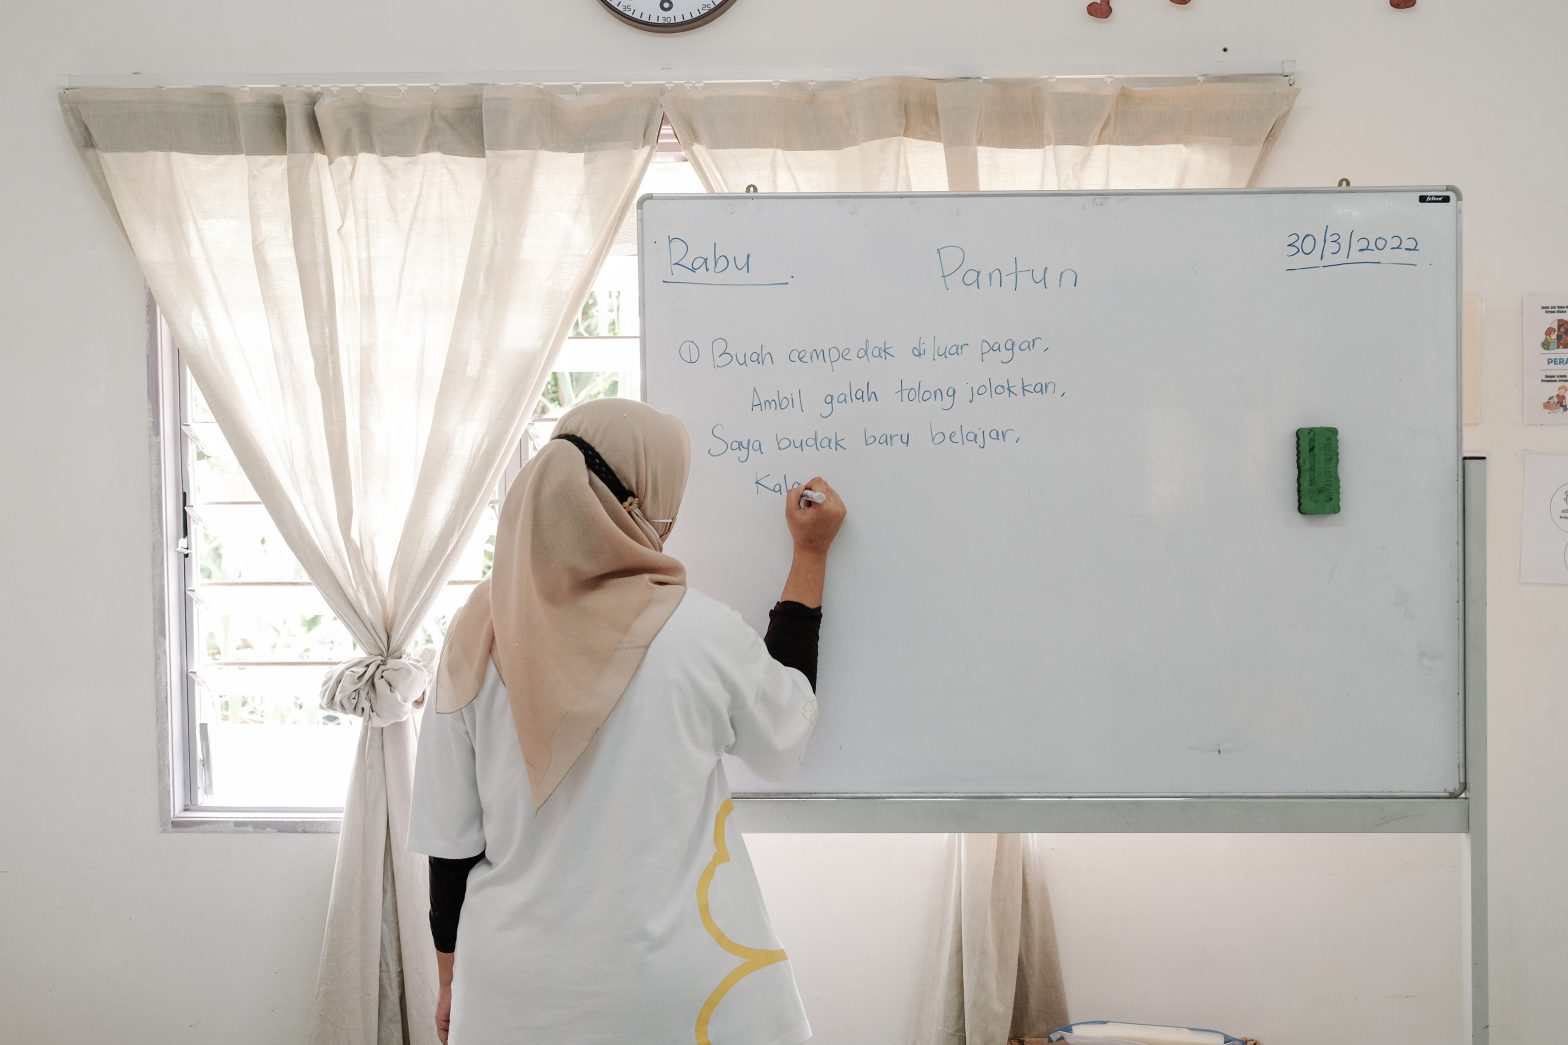 Rabu
Pantun
30/3/2022
① Buah cempedak diluar pagar,
Ambil galah tolong jolokkan,
Saya budak baru belajar,
35 30 25
PERA